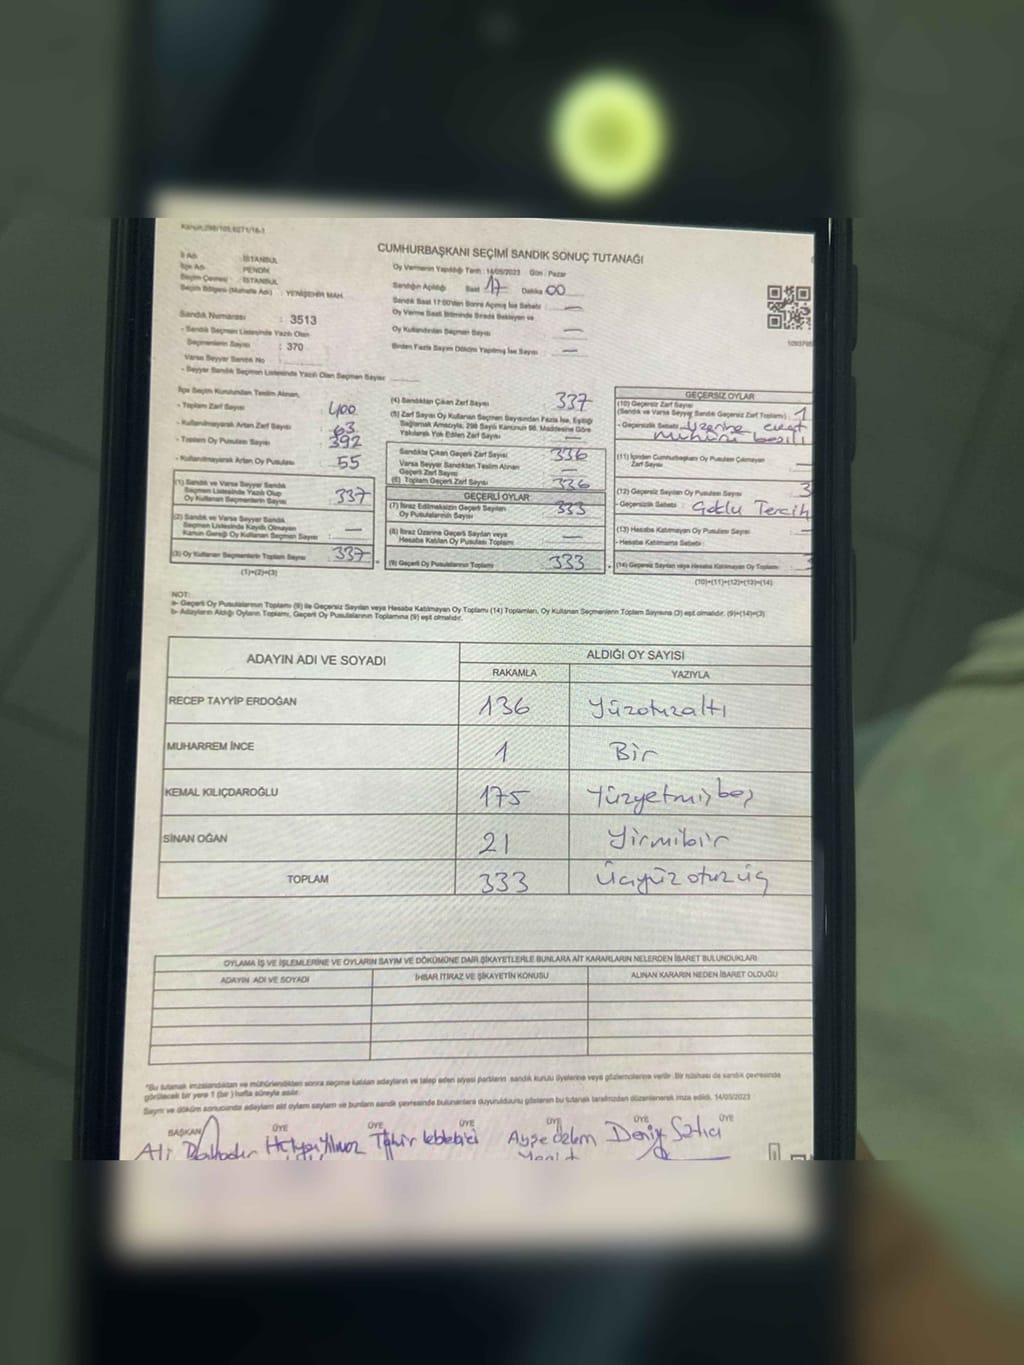 Kanun:298/105,6271/16-1
CUMHURBAŞKANI SEÇİMİ SANDIK SONUÇ TUTANAĞI
İl Adı : İSTANBUL
İlçe Adı : PENDİK
Seçim Çevresi : İSTANBUL
Seçim Bölgesi (Mahalle Adı) : YENİŞEHİR MAH.
Sandık Numarası : 3513
- Sandık Seçmen Listesinde Yazılı Olan
Seçmenlerin Sayısı : 370
Varsa Seyyar Sandık No :
- Seyyar Sandık Seçmen Listesinde Yazılı Olan Seçmen Sayısı
Oy Vermenin Yapıldığı Tarih :14/05/2023 Gün : Pazar
Sandığın Açıldığı Saat 17 Dakika 00
Sandık Saat 17:00'den Sonra Açılmış İse Sebebi : —
Oy Verme Saati Bitiminde Sırada Bekleyen ve
Oy Kullandırılan Seçmen Sayısı —
Birden Fazla Sayım Döküm Yapılmış İse Sayısı —
İlçe Seçim Kurulundan Teslim Alınan,
- Toplam Zarf Sayısı : 400
- Kullanılmayarak Artan Zarf Sayısı : 63
- Toplam Oy Pusulası Sayısı : 392
- Kullanılmayarak Artan Oy Pusulası : 55
(1) Sandık ve Varsa Seyyar Sandık
Seçmen Listesinde Yazılı Olup
Oy Kullanan Seçmenlerin Sayısı : 337
(2) Sandık ve Varsa Seyyar Sandık
Seçmen Listesinde Kayıtlı Olmayan
Kanun Gereği Oy Kullanan Seçmen Sayısı : —
(3) Oy Kullanan Seçmenlerin Toplam Sayısı : 337
(1)+(2)=(3)
(4) Sandıktan Çıkan Zarf Sayısı : 337
(5) Zarf Sayısı Oy Kullanan Seçmen Sayısından Fazla İse, Eşitliği
Sağlamak Amacıyla, 298 Sayılı Kanunun 98. Maddesine Göre
Yakılarak Yok Edilen Zarf Sayısı : —
Sandıkta Çıkan Geçerli Zarf Sayısı : 336
Varsa Seyyar Sandıktan Teslim Alınan
Geçerli Zarf Sayısı : —
(6) Toplam Geçerli Zarf Sayısı : 336
GEÇERLİ OYLAR
(7) İtiraz Edilmeksizin Geçerli Sayılan
Oy Pusulalarının Sayısı : 333
(8) İtiraz Üzerine Geçerli Sayılan veya
Hesaba Katılan Oy Pusulası Toplamı : —
(9) Geçerli Oy Pusulalarının Toplamı : 333
GEÇERSİZ OYLAR
(10) Geçersiz Zarf Sayısı
(Sandık ve Varsa Seyyar Sandık Geçersiz Zarf Toplamı) : 1
- Geçersizlik Sebebi : Üzerine evet
mühürü basılı
(11) İçinden Cumhurbaşkanı Oy Pusulası Çıkmayan
Zarf Sayısı —
(12) Geçersiz Sayılan Oy Pusulası Sayısı : 3
- Geçersizlik Sebebi : Çoklu Tercih
(13) Hesaba Katılmayan Oy Pusulası Sayısı : —
- Hesaba Katılmama Sebebi :
(14) Geçersiz Sayılan veya Hesaba Katılmayan Oy Toplamı :
(10)+(11)+(12)+(13)=(14)
NOT:
a- Geçerli Oy Pusulalarının Toplamı (9) ile Geçersiz Sayılan veya Hesaba Katılmayan Oy Toplamı (14) Toplamları, Oy Kullanan Seçmenlerin Toplam Sayısına (3) eşit olmalıdır. (9)+(14)=(3)
b- Adayların Aldığı Oyların Toplamı, Geçerli Oy Pusulalarının Toplamına (9) eşit olmalıdır.
ADAYIN ADI VE SOYADI ALDIĞI OY SAYISI
RAKAMLA YAZIYLA
RECEP TAYYİP ERDOĞAN 136 Yüzotuzaltı
MUHARREM İNCE 1 Bir
KEMAL KILIÇDAROĞLU 175 Yüzyetmişbeş
SİNAN OĞAN 21 Yirmibir
TOPLAM 333 Üçyüzotuzüç
OYLAMA İŞ VE İŞLEMLERİNE VE OYLARIN SAYIM VE DÖKÜMÜNE DAİR ŞİKAYETLERLE BUNLARA AİT KARARLARIN NELERDEN İBARET BULUNDUKLARI
ADAYIN ADI VE SOYADI İHBAR İTİRAZ VE ŞİKAYETİN KONUSU ALINAN KARARIN NEDEN İBARET OLDUĞU
*Bu tutanak imzalandıktan ve mühürlendikten sonra seçime katılan adayların ve talep eden siyasi partilerin sandık kurulu üyelerine veya gözlemcilerine verilir. Bir nüshası da sandık çevresinde
görülecek bir yere 1 (bir) hafta süreyle asılır.
Sayım ve döküm sonucunda adayların aldığı oyların sayısını ve bunların sandık çevresinde bulunanlara duyurulduğunu gösteren bu tutanak tarafımızdan düzenlenerek imza edildi. 14/05/2023
BAŞKAN ÜYE ÜYE ÜYE ÜYE ÜYE
Ali Bahadır Hülya Yılmaz Tahir Leblebici Ayşe Özlem Deniz Satıcı